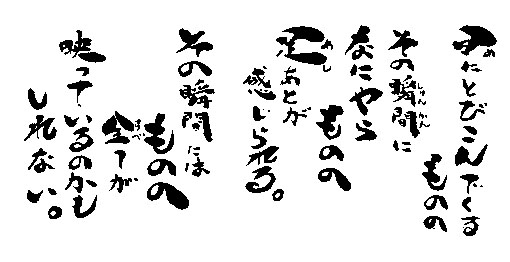 目にとびこんでくる
ものの
その瞬間に
なにやら
ものの
足あとが
感じられる。
その瞬間には
ものの
全てが
映っているのかも
しれない。